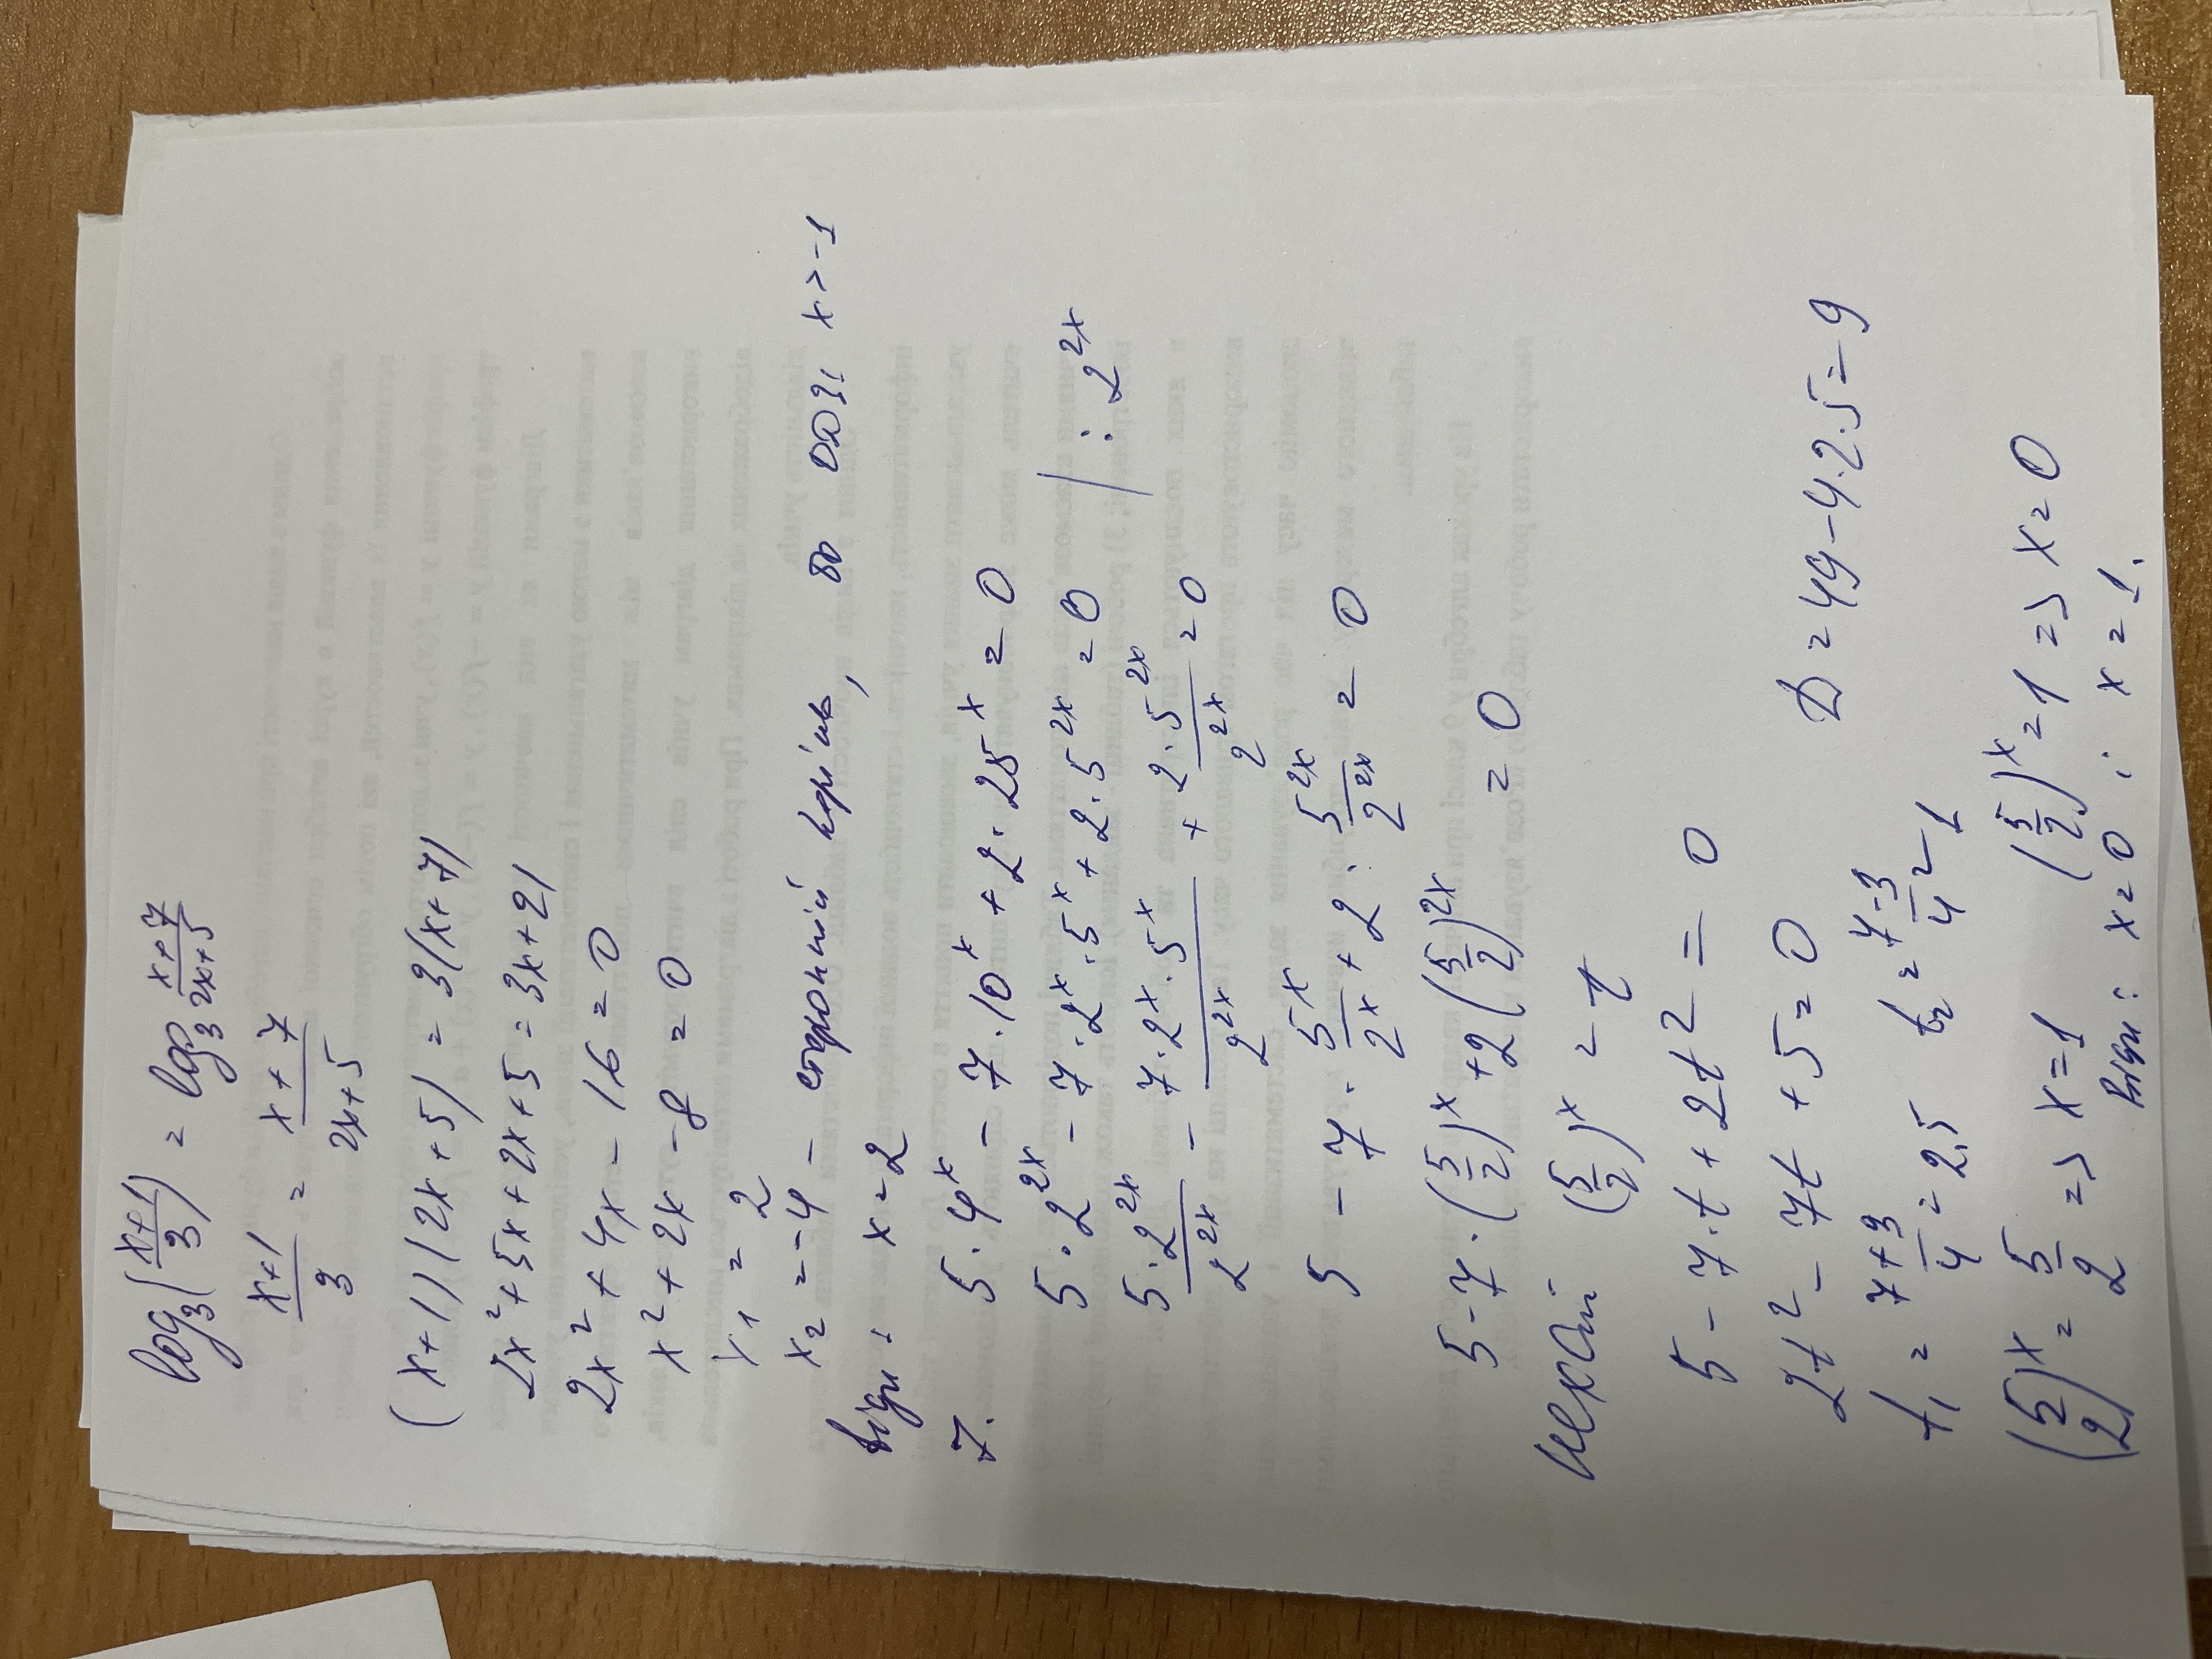 log₃((x+1)/3) = log₃ (x+7)/(2x+5)
(x+1)/3 = (x+7)/(2x+5)
(x+1)(2x+5) = 3(x+7)
2x²+5x+2x+5 = 3x+21
2x²+4x-16=0
x²+2x-8=0
x₁ = 2
x₂ = -4 - сторонній корінь, бо ОДЗ: x>-1
Відп: x=2
7. 5·4ˣ - 7·10ˣ + 2·25ˣ = 0
5·2²ˣ - 7·2ˣ·5ˣ + 2·5²ˣ = 0 | : 2²ˣ
5·2²ˣ/2²ˣ - 7·2ˣ·5ˣ/2²ˣ + 2·5²ˣ/2²ˣ = 0
5 - 7·5ˣ/2ˣ + 2·5²ˣ/2²ˣ = 0
5-7·(5/2)ˣ+2(5/2)²ˣ = 0
Нехай (5/2)ˣ = t
5-7·t+2t² = 0
2t²-7t+5=0 D=49-4·2·5=9
t₁ = (7+3)/4 = 2,5 t₂ = (7-3)/4 = 1
(5/2)ˣ = 5/2 => x=1 (5/2)ˣ = 1 => x=0
Відп: x=0 ; x=1.